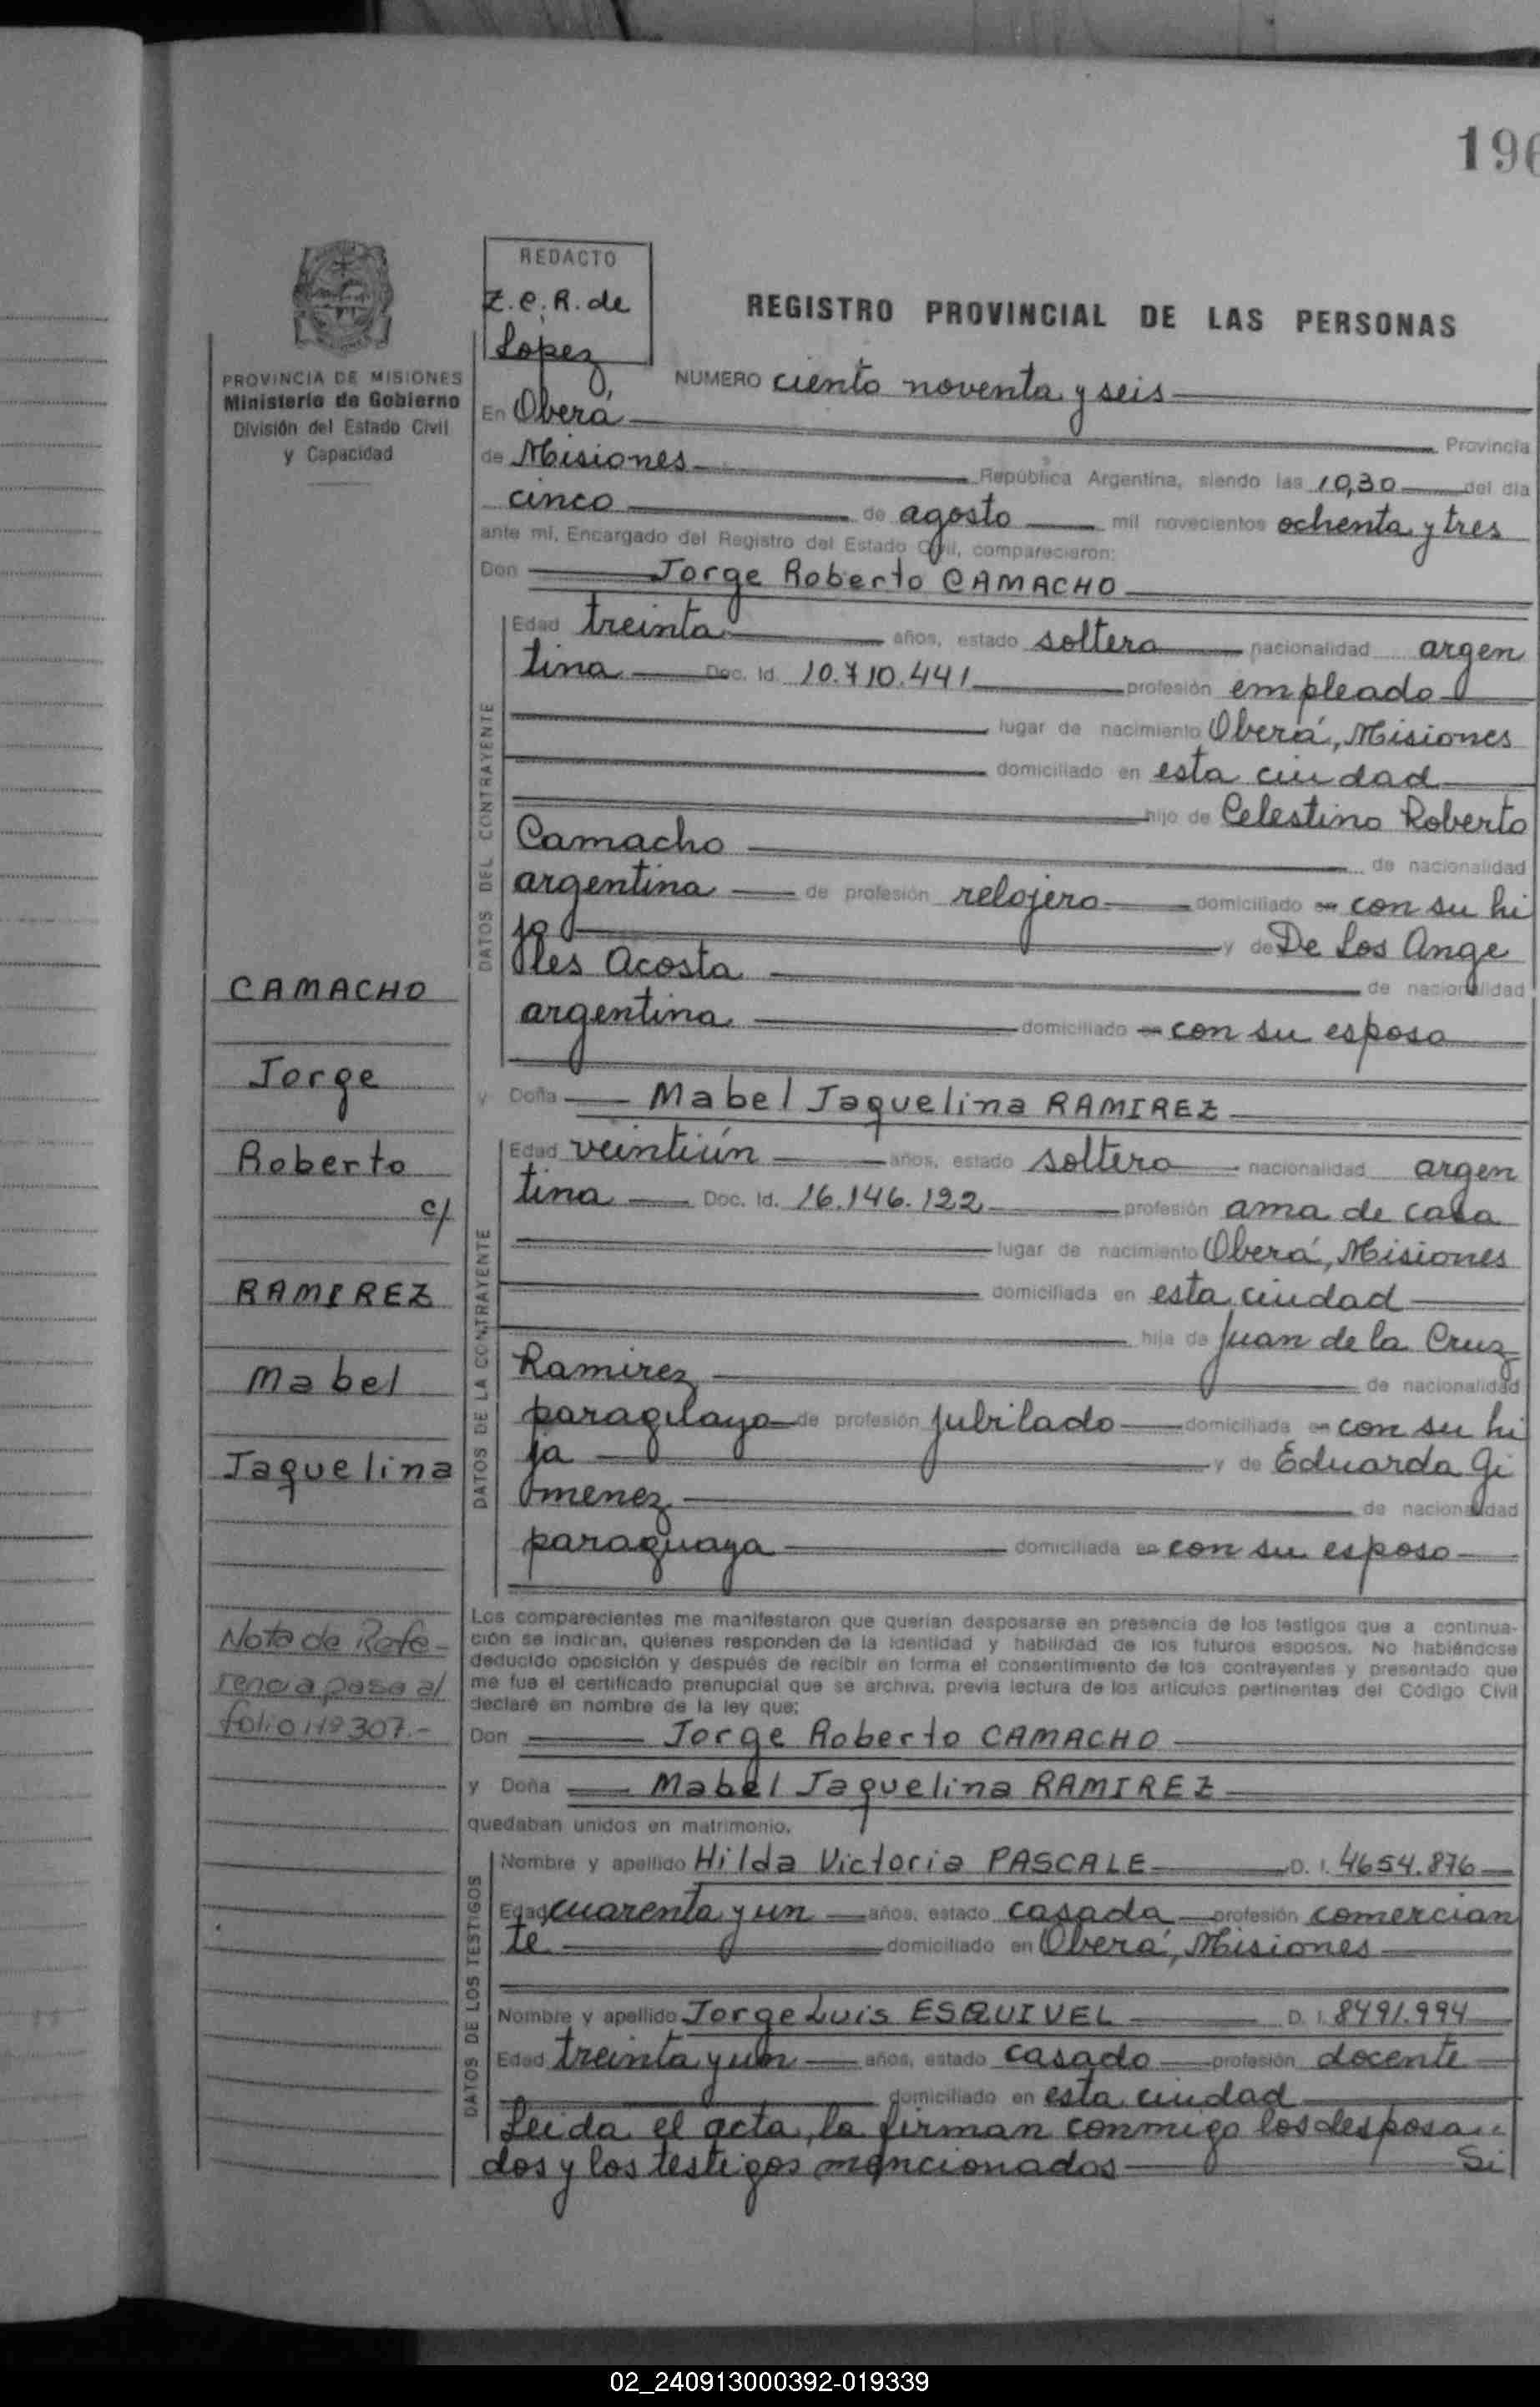 196
REDACTO
Z.C.R. de
Lopez
REGISTRO PROVINCIAL DE LAS PERSONAS
PROVINCIA DE MISIONES
Ministerio de Gobierno
División del Estado Civil
y Capacidad
NUMERO ciento noventa y seis
En Oberá Provincia
de Misiones República Argentina, siendo las 10,30 del día
cinco de agosto mil novecientos ochenta y tres
ante mi, Encargado del Registro del Estado Civil, comparecieron:
Don Jorge Roberto CAMACHO
DATOS DEL CONTRAYENTE
Edad treinta años, estado soltero nacionalidad argen
tina Doc. Id. 10.710.441 profesión empleado
lugar de nacimiento Oberá, Misiones
domiciliado en esta ciudad
hijo de Celestino Roberto
Camacho de nacionalidad
argentina de profesión relojero domiciliado en con su hi
jo y de De Los Ange
les Acosta de nacionalidad
argentina domiciliado en con su esposo
y Doña Mabel Jaquelina RAMIREZ
DATOS DE LA CONTRAYENTE
Edad veintiún años, estado soltera nacionalidad argen
tina Doc. Id. 16.146.122 profesión ama de casa
lugar de nacimiento Oberá, Misiones
domiciliada en esta ciudad
hija de Juan de la Cruz
Ramirez de nacionalidad
paraguayo de profesión jubilado domiciliada en con su hi
ja y de Eduarda Gi
menez de nacionalidad
paraguaya domiciliada en con su esposo
CAMACHO
Jorge
Roberto
c/
RAMIREZ
Mabel
Jaquelina
Nota de Refe-
rencia pasa al
folio Nº 307.-
Los comparecientes me manifestaron que querían desposarse en presencia de los testigos que a continua-
ción se indican, quienes responden de la identidad y habilidad de los futuros esposos. No habiéndose
deducido oposición y después de recibir en forma el consentimiento de los contrayentes y presentado que
me fue el certificado prenupcial que se archiva, previa lectura de los artículos pertinentes del Código Civil
declaré en nombre de la ley que:
Don Jorge Roberto CAMACHO
y Doña Mabel Jaquelina RAMIREZ
quedaban unidos en matrimonio.
DATOS DE LOS TESTIGOS
Nombre y apellido Hilda Victoria PASCALE D. I. 4654.876
Edad cuarenta y un años, estado casada profesión comercian
te domiciliado en Oberá, Misiones
Nombre y apellido Jorge Luis ESQUIVEL D. I. 8491.994
Edad treinta y un años, estado casado profesión docente
domiciliado en esta ciudad
Leida el acta, la firman conmigo los desposa..
dos y los testigos mencionados Si
02_240913000392-019339